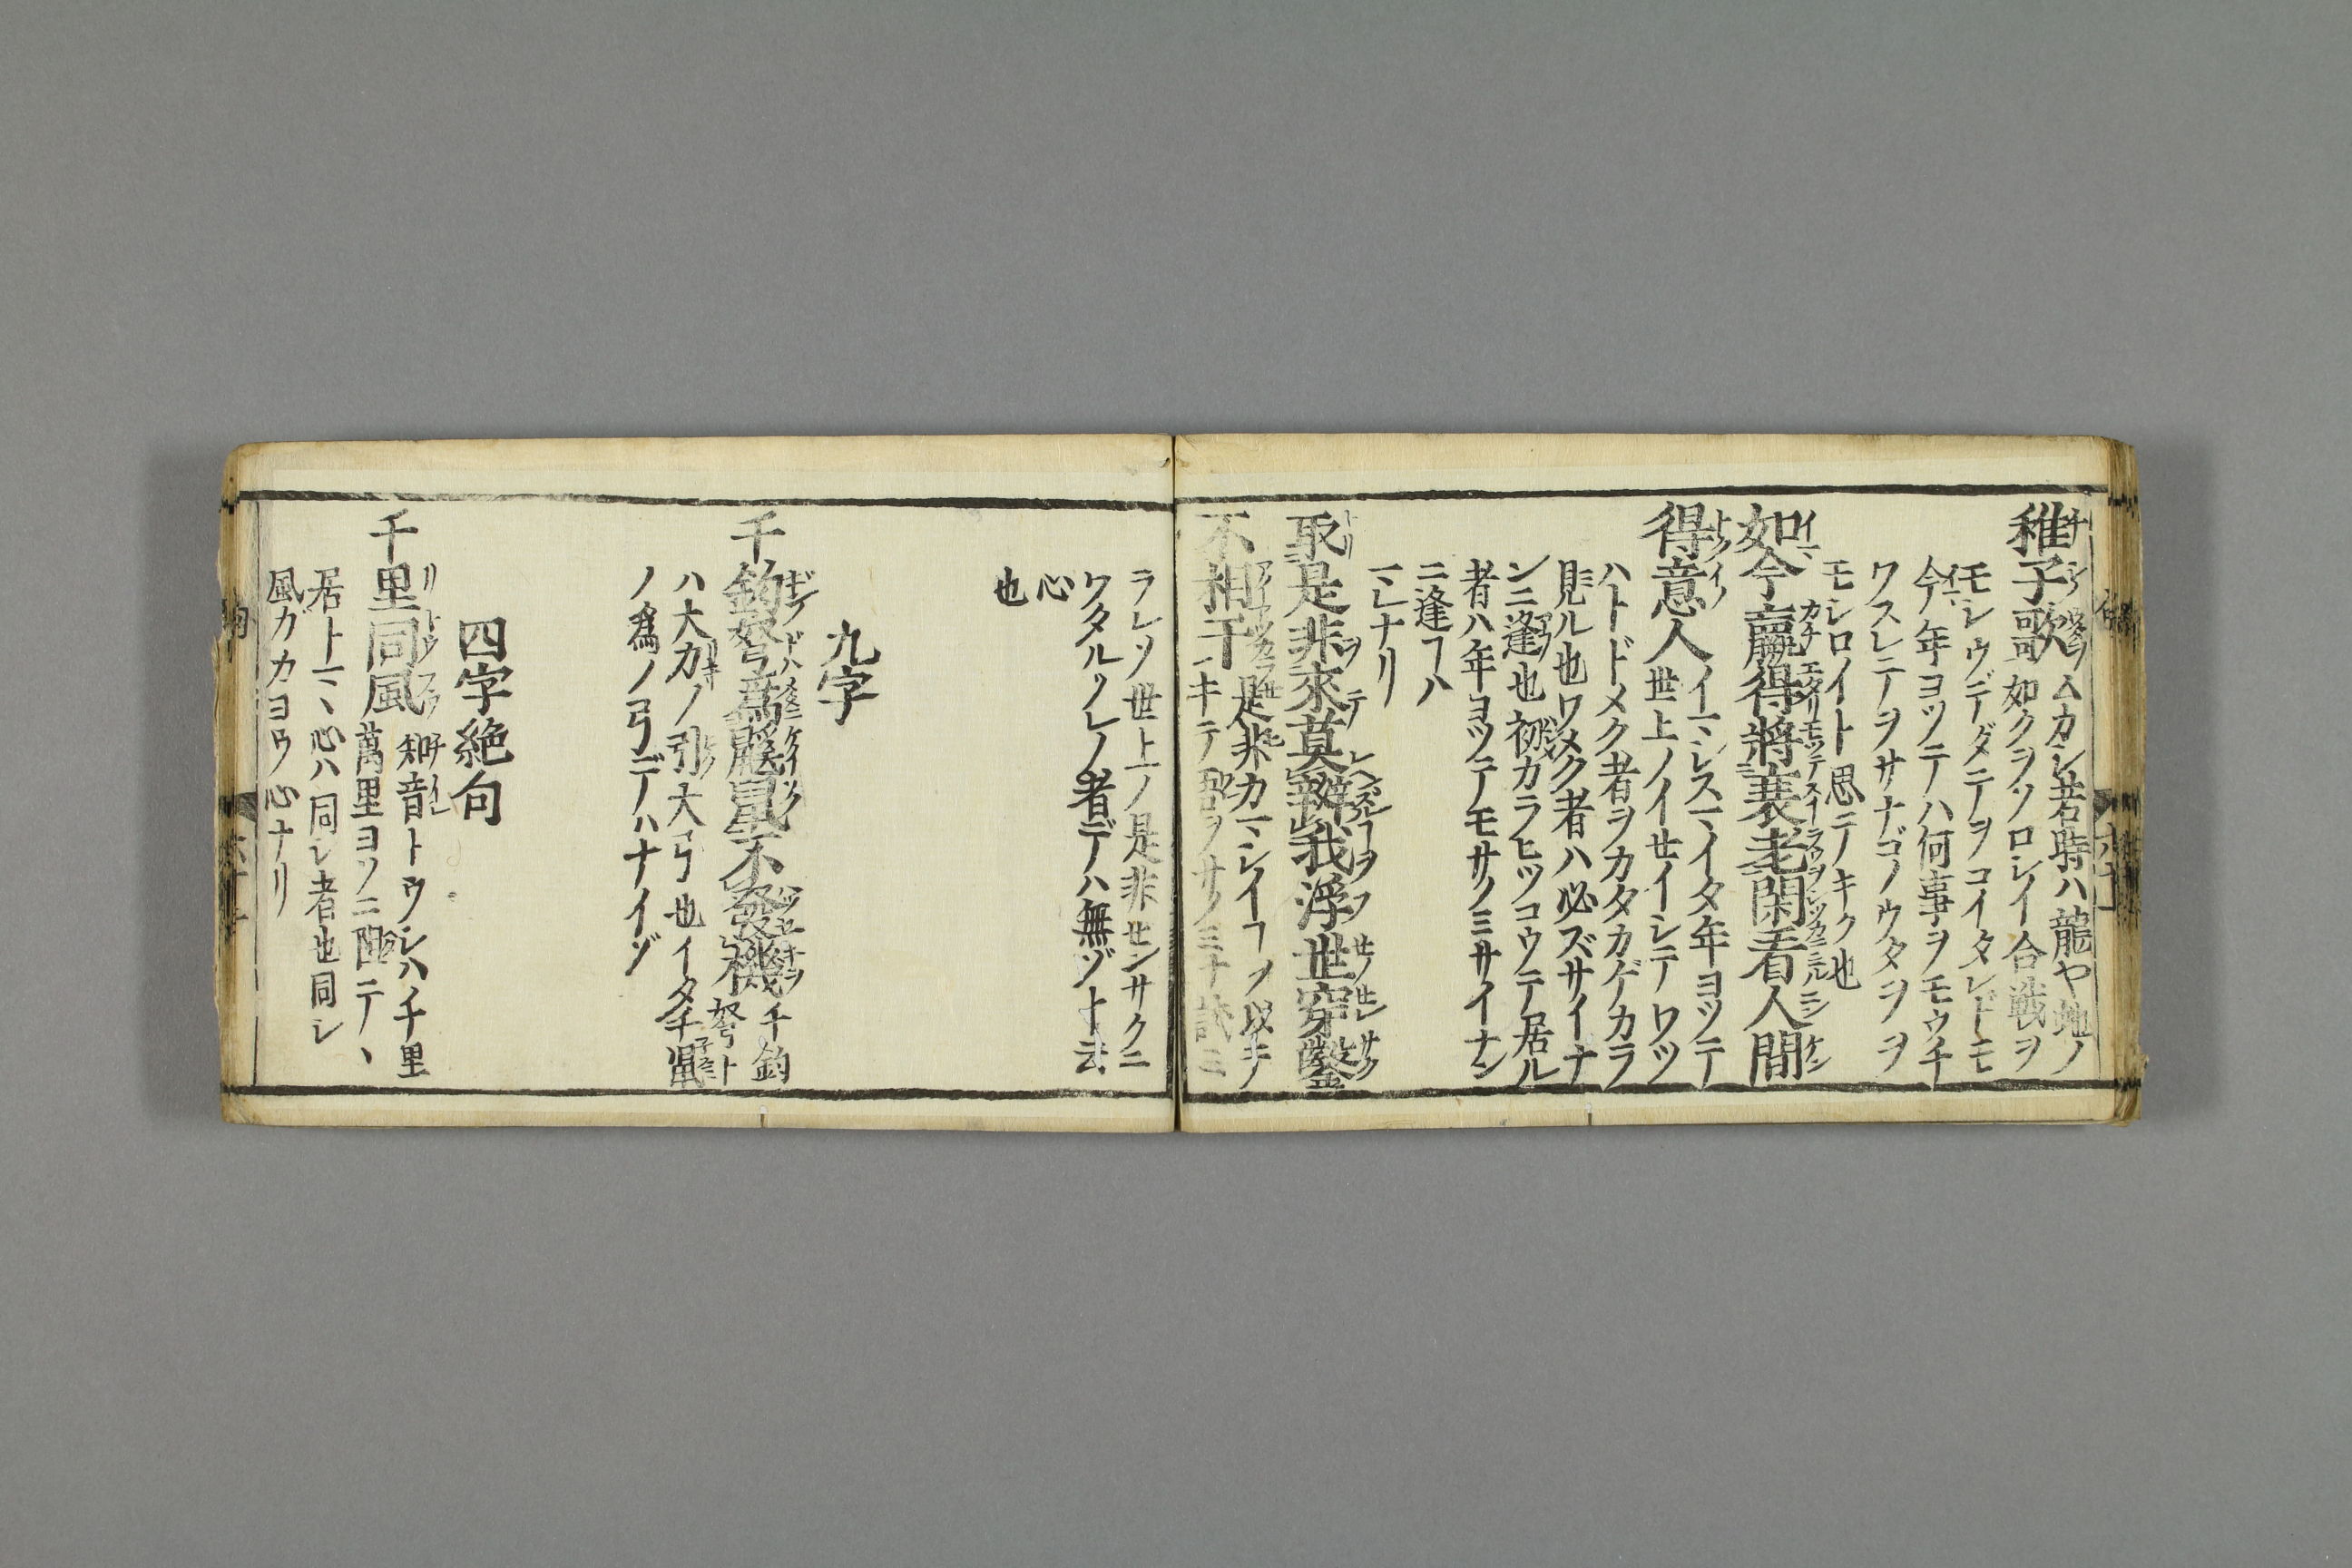 稚子歌ムカシ若時ハ龍ヤ地ノ
如クヲソロシイ合戦ヲ
モシウデダテヲコイタレドモ
今年ヨツテハ何事ヲモウチ
ワスレテヲサナゴノウタヲヲ
モシロイト思テキク也
如今贏得將衰老閑看人間
得意人イマシスマイタ年ヨツテ
世上ノイイ世イシテワツ
ハトドメク者ヲカタカゲカラ
見ル也ワメク者ハ必ズサイナ
ンニ逢也初カラヒツコウテ居ル
者ハ年ヨツテモサノミサイナン
ニ逢フハ
マレナリ
取是非來莫辨我浮世穿鑿
不相干是非カマシイフノ以テ
キテ
ラレソ世上ノ是非センサクニ
ワタルソレノ者デハ無ゾト云
心
也
九字
千鈞弩爲鼷鼠不發機千鈞
弩ト
ハ大力ノ引大弓也イタチ鼠
ノ爲ノ弓デハナイゾ
四字絶句
千里同風知音トウシハ千里
萬里ヨソニ阻テヽ
居トマヽ心ハ同シ者也同シ
風ガカヨウ心ナリ